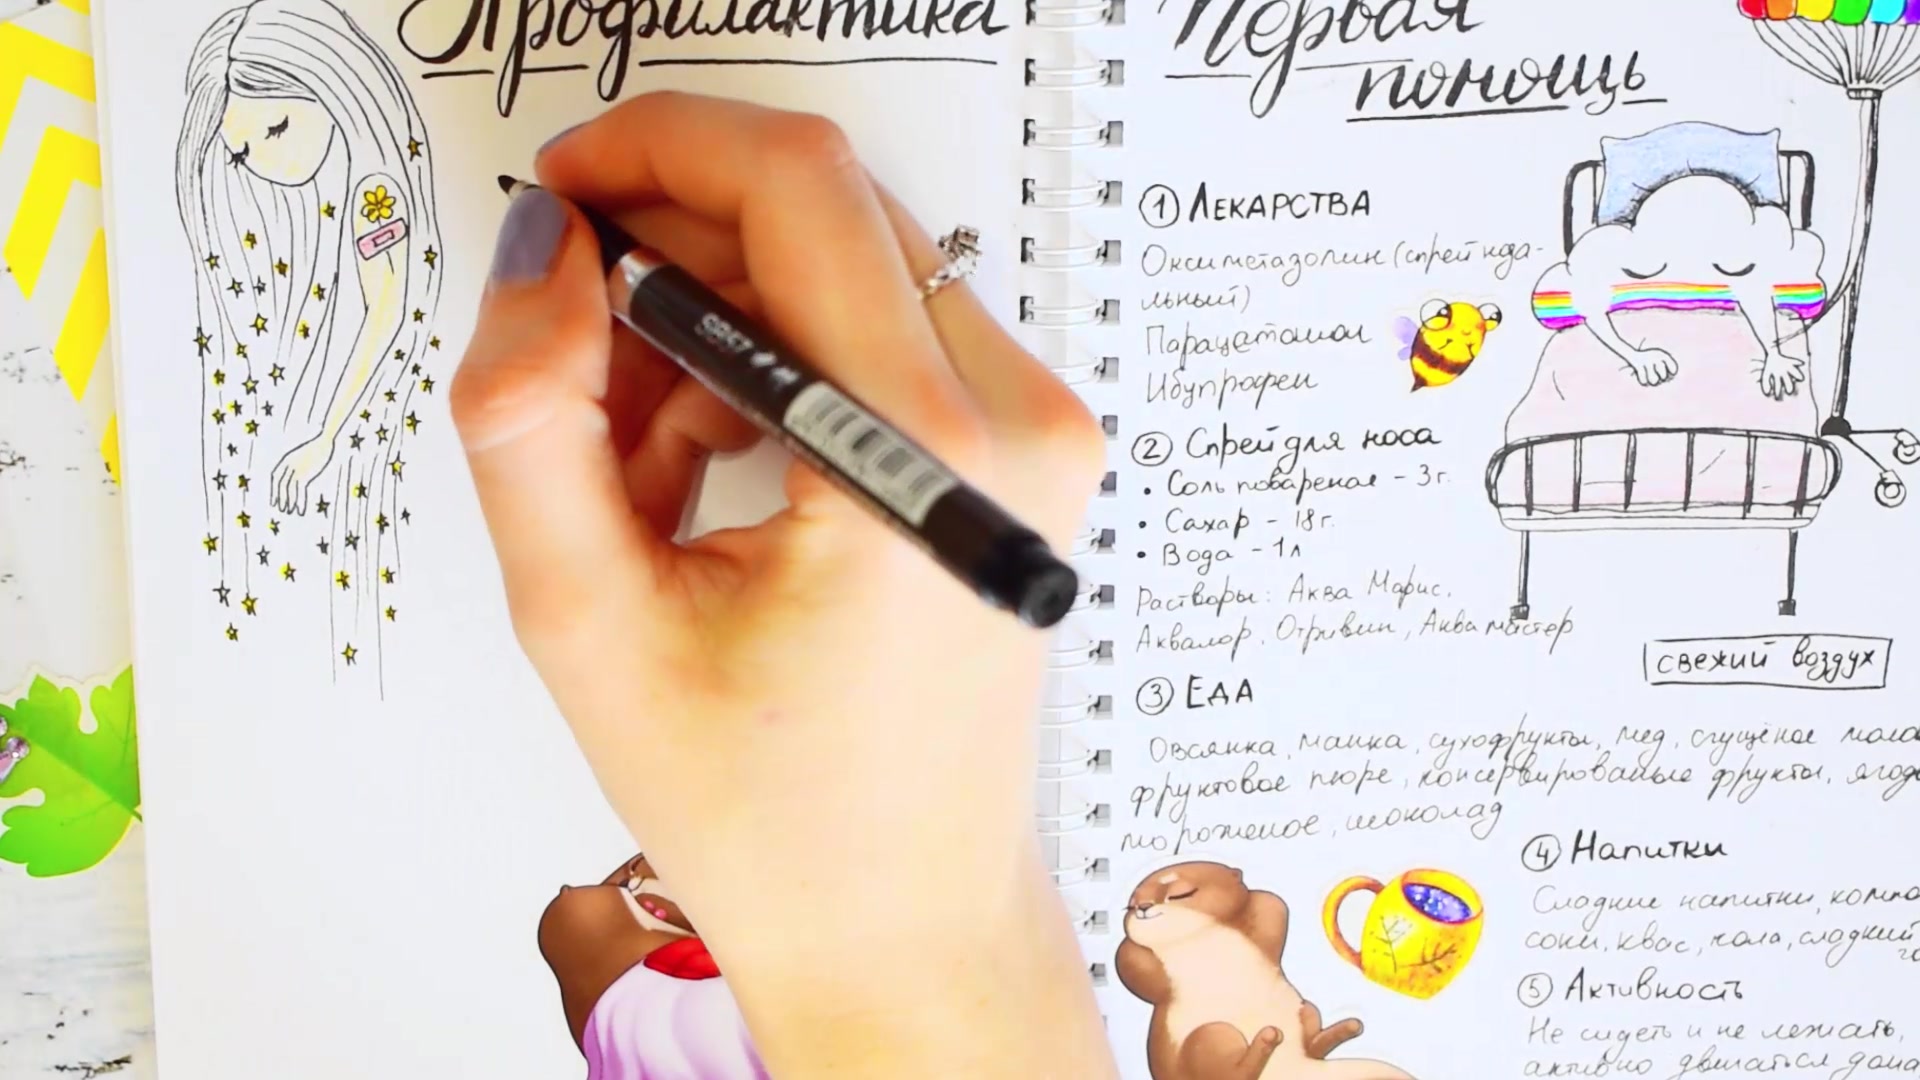 Профилактика
Первая
помощь
① ЛЕКАРСТВА
Оксиметазолин (спрей наза-
льный)
Парацетамол
Ибупрофен
② Спрей для носа
• Соль поваренная – 3 г.
• Сахар – 18 г.
• Вода – 1 л
Растворы: Аква Марис,
Аквалор, Отривин, Аква мастер
свежий воздух
③ ЕДА
Овсянка, манка, сухофрукты, мед, сгущёное
фруктовое пюре, консервированые фрукты,
мороженое, шоколад
④ Напитки
Сладкие напитки,
соки, квас, кола, сладкий
⑤ Активность
Не сидеть и не лежать,
активно двигаться дома